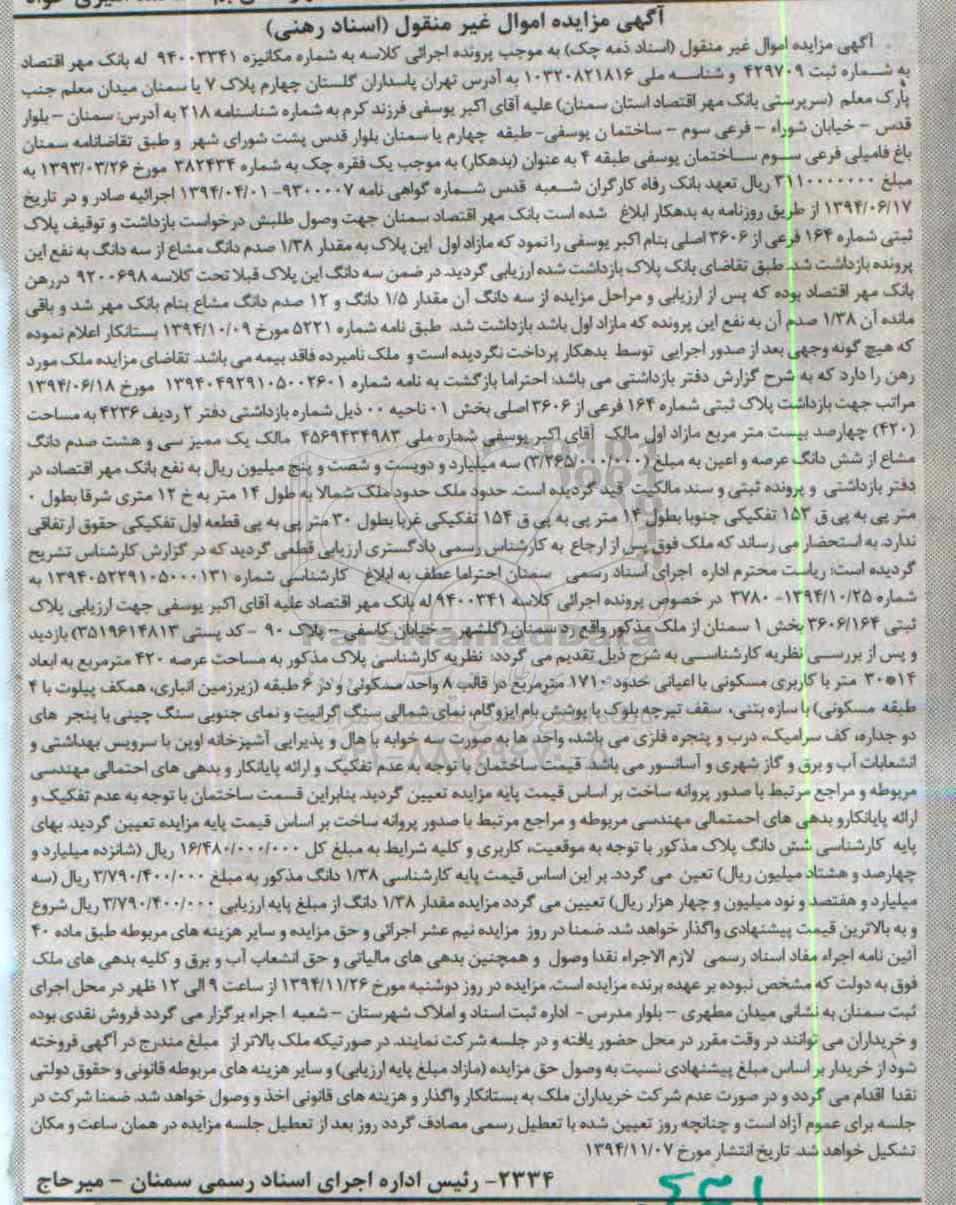 آگهی مزایده اموال غیر منقول (اسناد رهنی)
آگهی مزایده اموال غیر منقول (اسناد ذمه چک) به موجب پرونده اجرائی کلاسه به شماره مکانیزه ۹۴۰۰۳۳۴۱ له بانک مهر اقتصاد
به شماره ثبت ۴۲۹۷۰۹ و شناسه ملی ۱۰۳۲۰۸۲۱۸۱۶ به آدرس تهران پاسداران گلستان چهارم پلاک ۷ یا سمنان میدان معلم جنب
پارک معلم (سرپرستی بانک مهر اقتصاد استان سمنان) علیه آقای اکبر یوسفی فرزند کرم به شماره شناسنامه ۲۱۸ به آدرس: سمنان – بلوار
قدس – خیابان شوراء – فرعی سوم – ساختما ن یوسفی- طبقه چهارم یا سمنان بلوار قدس پشت شورای شهر و طبق تقاضانامه سمنان
باغ فامیلی فرعی سوم ساختمان یوسفی طبقه ۴ به عنوان (بدهکار) به موجب یک فقره چک به شماره ۳۸۲۴۳۴ مورخ ۱۳۹۳/۰۳/۲۶ به
مبلغ ۳۱۱۰۰۰۰۰۰۰ ریال تعهد بانک رفاه کارگران شعبه قدس شماره گواهی نامه ۹۳۰۰۰۰۷- ۱۳۹۴/۰۴/۰۱ اجرائیه صادر و در تاریخ
۱۳۹۴/۰۶/۱۷ از طریق روزنامه به بدهکار ابلاغ شده است بانک مهر اقتصاد سمنان جهت وصول طلبش درخواست بازداشت و توقیف پلاک
ثبتی شماره ۱۶۴ فرعی از ۳۶۰۶ اصلی بنام اکبر یوسفی را نمود که مازاد اول این پلاک به مقدار ۱/۳۸ صدم دانگ مشاع از سه دانگ به نفع این
پرونده بازداشت شد. طبق تقاضای بانک پلاک بازداشت شده ارزیابی گردید. در ضمن سه دانگ این پلاک قبلا تحت کلاسه ۹۲۰۰۶۹۸ دررهن
بانک مهر اقتصاد بوده که پس از ارزیابی و مراحل مزایده از سه دانگ آن مقدار ۱/۵ دانگ و ۱۲ صدم دانگ مشاع بنام بانک مهر شد و باقی
مانده آن ۱/۳۸ صدم آن به نفع این پرونده که مازاد اول باشد بازداشت شد. طبق نامه شماره ۵۲۲۱ مورخ ۱۳۹۴/۱۰/۰۹ بستانکار اعلام نموده
که هیچ گونه وجهی بعد از صدور اجرایی توسط بدهکار پرداخت نگردیده است و ملک نامبرده فاقد بیمه می باشد. تقاضای مزایده ملک مورد
رهن را دارد که به شرح گزارش دفتر بازداشتی می باشد: احتراما بازگشت به نامه شماره ۱۳۹۴۰۴۹۲۹۱۰۵۰۰۲۶۰۱ مورخ ۱۳۹۴/۰۶/۱۸
مراتب جهت بازداشت پلاک ثبتی شماره ۱۶۴ فرعی از ۳۶۰۶ اصلی بخش ۰۱ ناحیه ۰۰ ذیل شماره بازداشتی دفتر ۲ ردیف ۴۲۳۶ به مساحت
(۴۲۰) چهارصد بیست متر مربع مازاد اول مالک آقای اکبر یوسفی شماره ملی ۴۵۶۹۴۳۴۹۸۳ مالک یک ممیز سی و هشت صدم دانگ
مشاع از شش دانگ عرصه و اعین به مبلغ (۳/۲۶۵/۰۰۰/۰۰۰) سه میلیارد و دویست و شصت و پنج میلیون ریال به نفع بانک مهر اقتصاد، در
دفتر بازداشتی و پرونده ثبتی و سند مالکیت قید گردیده است. حدود ملک حدود ملک شمالا به طول ۱۴ متر به خ ۱۲ متری شرقا بطول ۰
متر پی به پی ق ۱۵۳ تفکیکی جنوبا بطول ۱۴ متر پی به پی ق ۱۵۴ تفکیکی غربا بطول ۳۰ متر پی به پی قطعه اول تفکیکی حقوق ارتفاقی
ندارد. به استحضار می رساند که ملک فوق پس از ارجاع به کارشناس رسمی دادگستری ارزیابی قطعی گردید که در گزارش کارشناس تشریح
گردیده است: ریاست محترم اداره اجرای اسناد رسمی سمنان احتراما عطف به ابلاغ کارشناسی شماره ۱۳۹۴۰۵۲۲۹۱۰۵۰۰۰۱۳۱ به
شماره ۱۳۹۴/۱۰/۲۵- ۳۷۸۰ در خصوص پرونده اجرائی کلاسه ۹۴۰۰۳۴۱ له بانک مهر اقتصاد علیه آقای اکبر یوسفی جهت ارزیابی پلاک
ثبتی ۳۶۰۶/۱۶۴ بخش ۱ سمنان از ملک مذکور واقع رد سمنان (گلشهر – خیابان کاسفی – پلاک ۹۰ – کد پستی ۳۵۱۹۶۱۴۸۱۳) بازدید
و پس از بررسی نظریه کارشناسی به شرح ذیل تقدیم می گردد: نظریه کارشناسی پلاک مذکور به مساحت عرصه ۴۲۰ مترمربع به ابعاد
۱۴*۳۰ متر با کاربری مسکونی با اعیانی حدود ۱۷۱۰ مترمربع در قالب ۸ واحد مسکونی و در ۶ طبقه (زیرزمین انباری، همکف پیلوت با ۴
طبقه مسکونی) با سازه بتنی، سقف تیرچه بلوک با پوشش بام ایزوگام، نمای شمالی سنگ گرانیت و نمای جنوبی سنگ چینی با پنجر های
دو جداره، کف سرامیک، درب و پنجره فلزی می باشد، واحد ها به صورت سه خوابه با هال و پذیرایی آشپزخانه اوپن با سرویس بهداشتی و
انشعابات آب و برق و گاز شهری و آسانسور می باشد. قیمت ساختمان با توجه به عدم تفکیک و ارائه پایانکار و بدهی های احتمالی مهندسی
مربوطه و مراجع مرتبط با صدور پروانه ساخت بر اساس قیمت پایه مزایده تعیین گردید. بنابراین قسمت ساختمان با توجه به عدم تفکیک و
ارائه پایانکارو بدهی های احمتمالی مهندسی مربوطه و مراجع مرتبط با صدور پروانه ساخت بر اساس قیمت پایه مزایده تعیین گردید. بهای
پایه کارشناسی شش دانگ پلاک مذکور با توجه به موقعیت، کاربری و کلیه شرایط به مبلغ کل ۱۶/۴۸۰/۰۰۰/۰۰۰ ریال (شانزده میلیارد و
چهارصد و هشتاد میلیون ریال) تعین می گردد. بر این اساس قیمت پایه کارشناسی ۱/۳۸ دانگ مذکور به مبلغ ۳/۷۹۰/۴۰۰/۰۰۰ ریال (سه
میلیارد و هفتصد و نود میلیون و چهار هزار ریال) تعیین می گردد مزایده مقدار ۱/۳۸ دانگ از مبلغ پایه ارزیابی ۳/۷۹۰/۴۰۰/۰۰۰ ریال شروع
و به بالاترین قیمت پیشنهادی واگذار خواهد شد. ضمنا در روز مزایده نیم عشر اجرائی و حق مزایده و سایر هزینه های مربوطه طبق ماده ۴۰
آئین نامه اجراء مفاد اسناد رسمی لازم الاجراء نقدا وصول و همچنین بدهی های مالیاتی و حق انشعاب آب و برق و کلیه بدهی های ملک
فوق به دولت که مشخص نبوده بر عهده برنده مزایده است. مزایده در روز دوشنبه مورخ ۱۳۹۴/۱۱/۲۶ از ساعت ۹ الی ۱۲ ظهر در محل اجرای
ثبت سمنان به نشانی میدان مطهری – بلوار مدرس – اداره ثبت اسناد و املاک شهرستان – شعبه ا جراء برگزار می گردد فروش نقدی بوده
و خریداران می توانند در وقت مقرر در محل حضور یافته و در جلسه شرکت نمایند. در صورتیکه ملک بالاتر از مبلغ مندرج در آگهی فروخته
شود از خریدار بر اساس مبلغ پیشنهادی نسبت به وصول حق مزایده (مازاد مبلغ پایه ارزیابی) و سایر هزینه های مربوطه قانونی و حقوق دولتی
نقدا اقدام می گردد و در صورت عدم شرکت خریداران ملک به بستانکار واگذار و هزینه های قانونی اخذ و وصول خواهد شد. ضمنا شرکت در
جلسه برای عموم آزاد است و چنانچه روز تعیین شده با تعطیل رسمی مصادف گردد روز بعد از تعطیل جلسه مزایده در همان ساعت و مکان
تشکیل خواهد شد. تاریخ انتشار مورخ ۱۳۹۴/۱۱/۰۷
۲۳۳۴- رئیس اداره اجرای اسناد رسمی سمنان – میرحاج